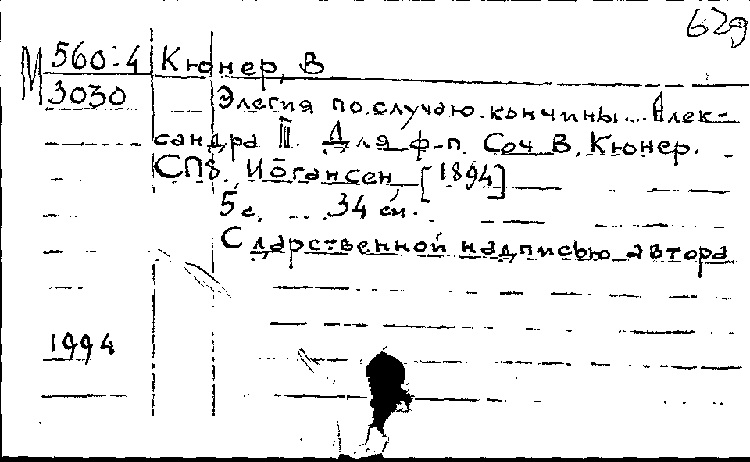 629
М 560:4 Кюнер, В
3030 Элегия по случаю кончины Алек-
сандра III. Для ф-п. Соч. В. Кюнер.
СПб. Иогансен [1894]
5 с. 34 см.
С дарственной надписью автора
1994